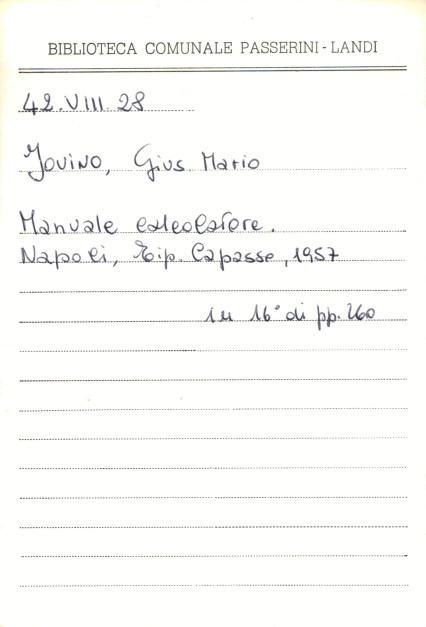 BIBLIOTECA COMUNALE PASSERINI - LANDI
42. VIII 28
Jovino, Gius. Mario
Manuale calcolatore.
Napoli, Tip. Capasse, 1957
in 16° di pp. 260